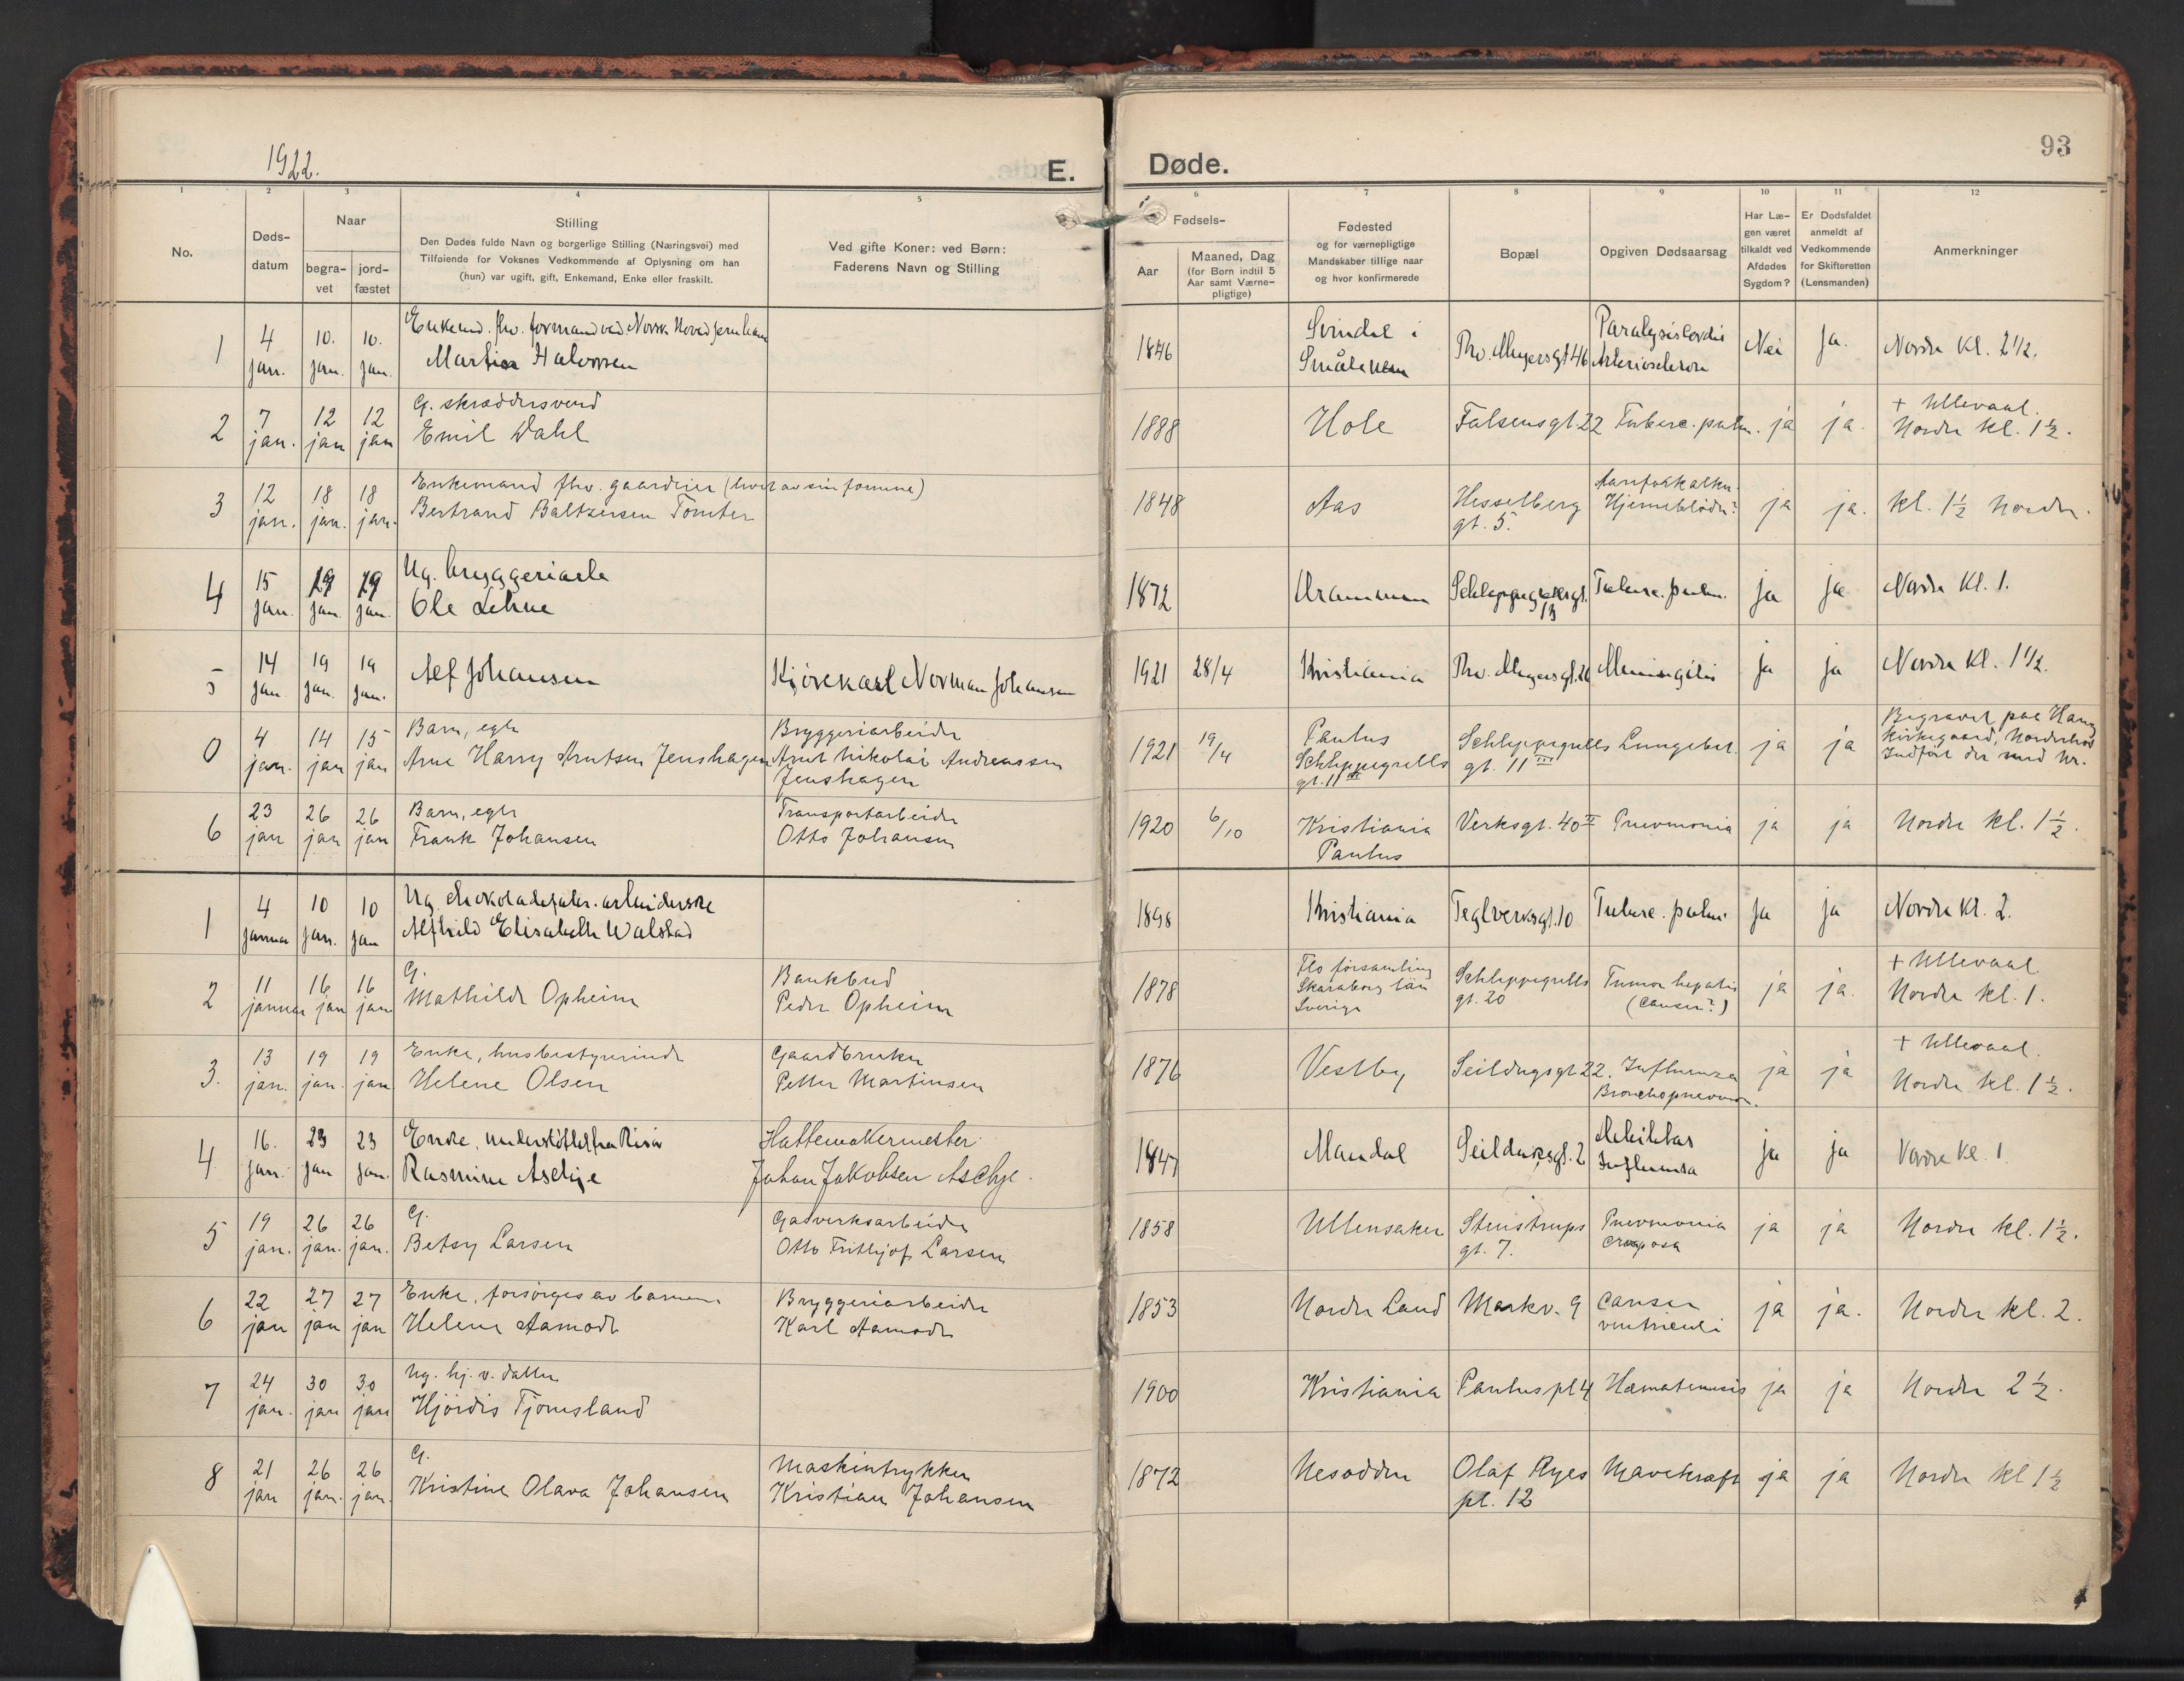 1922.
E.
Døde.
93
1 2 3 4 5 6 7 8 9 10 11 12
No.
Døds-
datum
Naar
begra-
vet
jord-
fæstet
Stilling
Den Dødes fulde Navn og borgerlige Stilling (Næringsvei) med
Tilføiende for Voksnes Vedkommende af Oplysning om han
(hun) var ugift, gift, Enkemand, Enke eller fraskilt.
Ved gifte Koner: ved Børn:
Faderens Navn og Stilling
Fødsels-
Aar
Maaned, Dag
(for Børn indtil 5
Aar samt Værne-
pligtige)
Fødested
og for værnepligtige
Mandskaber tillige naar
og hvor konfirmerede
Bopæl
Opgiven Dødsaarsag
Har Læ-
gen været
tilkaldt ved
Afdødes
Sygdom?
Er Dødsfaldet
anmeldt af
Vedkommende
for Skifteretten
(Lensmanden)
Anmerkninger
1
4 jan.
10. jan.
10. jan.
Enkemd. fhv. formand ved Norsk Hoved
Martin Halvorsen
1846
Svindal i
Smålenene
Thv. Meyersgt 46
Paralysis cordis
Arteriosclerose
Nei
Ja.
Nordre Kl. 2 1/2.
2
7 jan.
12 jan
12 jan
G. skræddersvend
Emil Dahl
1888
Hole
Falsensgt. 22
Tuberc. pulm.
ja
ja.
+ Ullevaal.
Nordre kl. 1 1/2.
3
12 jan.
18 jan.
18 jan.
Enkemand fhv. gaardeier (levet av sin formue)
Bertrand Baltzersen Tomter
1848
Aas
Hesselberg
gt. 5.
Aareforkalkn.
Hjerneblødn?
ja
ja.
kl. 1 1/2 Nordre.
4
15 jan.
19 jan.
19 jan.
Ug. bryggeriarb.
Ole Lehne
1872
Drammen
Schleppegrellsgt.
13
Tuberc. pulm.
ja
ja
Nordre Kl. 1.
5
14 jan
19 jan.
19 jan.
Alf Johansen
Kjørekarl Norman Johansen
1921
28/4
Kristiania
Thv. Meyersgt. 26
Meningitis
ja
ja
Nordre Kl. 1 1/2.
0
4 jan.
14 jan
15 jan
Barn, egte
Arne Harry Arntsen Jenshagen
Bryggeriarbeider
Arnt Nikolai Andreassen
Jenshagen
1921
19/4
Paulus
Schleppegrells
gt. 11 III
Schleppegrells
gt. 11 III
Lungebet.
ja
ja
Begravet paa Haug
Kirkegaard, Norderhov
Indført der med Nr.
6
23 jan
26 jan
26 jan
Barn, egte
Frank Johansen
Transportarbeider
Otto Johansen
1920
6/10
Kristiania
Paulus
Verksgt. 40 II
Pneumonia
ja
ja
Nordre kl. 1 1/2.
1
4 januar
10 jan.
10 jan
Ug. chokoladefabr. arbeiderske
Alfhild Elisabeth Walstad
1898
Kristiania
Teglverksgt. 10
Tuberc. pulm.
ja
ja
Nordre Kl. 2.
2
11 januar
16 jan
16 jan
G.
Mathilde Opheim
Bankbud
Peder Opheim
1878
Flo församling
Skaraborg län
Sverige
Schleppegrells
gt. 20
Tumor hepatis
(Cancer?)
ja
ja.
+ Ullevaal
Nordre kl. 1.
3.
13 jan.
19 jan.
19 jan
Enke, husbestyrerinde
Helene Olsen
Gaardbruker
Petter Martinsen
1876
Vestby
Seildugsgt 22.
Influenza
Bronchopneumon.
ja
ja
+ Ullevaal.
Nordre kl. 1 1/2.
4
16. jan.
23 jan
23 jan.
Enke, understøttet fra Risør
Rasmine Aschje
Hattemakermester
Johan Jakobsen Aschje.
1847
Mandal
Seilduksgt. 2
Debilitas
Influensa
ja
ja
Nordre Kl. 1
5
19 jan.
26 jan.
26 jan.
G.
Betsy Larsen
Gasverksarbeider
Otto Frithjof Larsen
1858
Ullensaker
Stenstrups
gt. 7.
Pneumonia
crouposa
ja
ja
Nordre kl. 1 1/2.
6
22 jan
27 jan
27 jan
Enke, forsørges av barnene
Helene Aamodt
Bryggeriarbeider
Karl Aamodt
1853
Nordre Land
Markv. 9
Cancer
ventriculi
ja
ja.
Nordre kl. 2.
7
24 jan.
30 jan
30 jan
Ug. hj. v. datter
Hjørdis Tjomsland
1900
Kristiania
Pauluspl 4
Hæmatemesis
ja
ja
Nordre 2 1/2.
8
21 jan
26 jan.
26 jan.
G.
Kristine Olava Johansen
Maskintrykker
Kristian Johansen
1872
Nesodden
Olaf Ryes
pl. 12
Mavekræft
ja
ja
Nordre kl 1 1/2